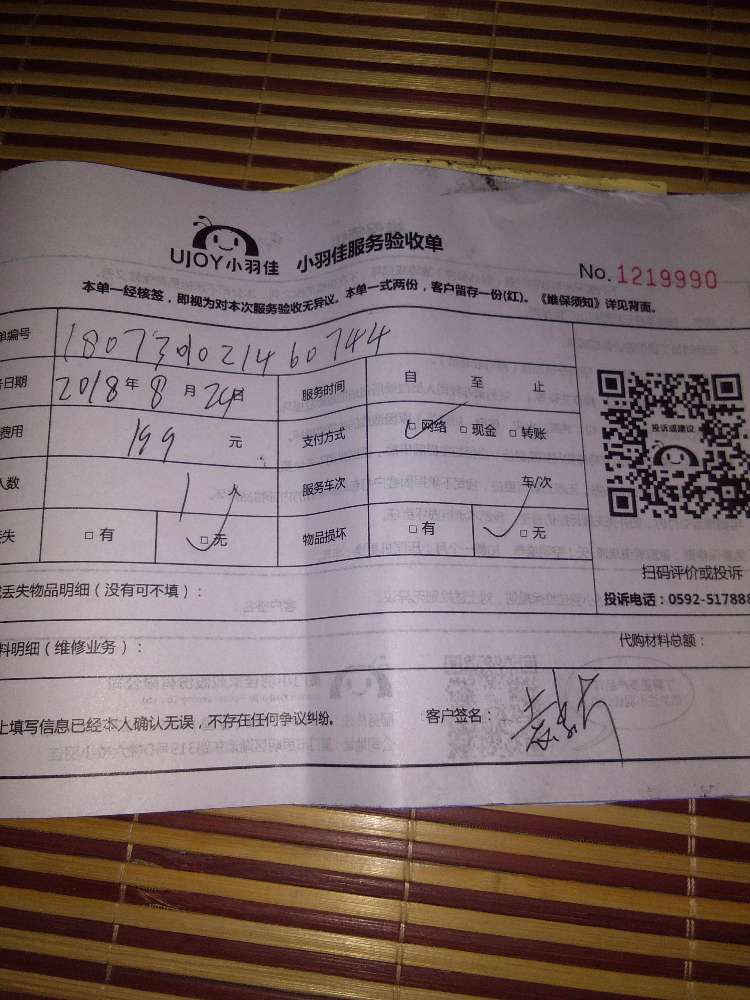 UJOY小羽佳 小羽佳服务验收单
No. 1219990
本单一经核签，即视为对本次服务验收无异议。本单一式两份，客户留存一份(红)。《维保须知》详见背面。
单编号 18073002146 0744
日期 2018年 8月 29日 服务时间 自 至 止
费用 199 元 支付方式 □网络 □现金 □转账
人数 1 人 服务车次 车/次
失 □有 □无 物品损坏 □有 □无
投诉或建议
扫码评价或投诉
投诉电话：0592-517888
丢失物品明细（没有可不填）：
料明细（维修业务）：
代购材料总额：
上填写信息已经本人确认无误，不存在任何争议纠纷。 客户签名：